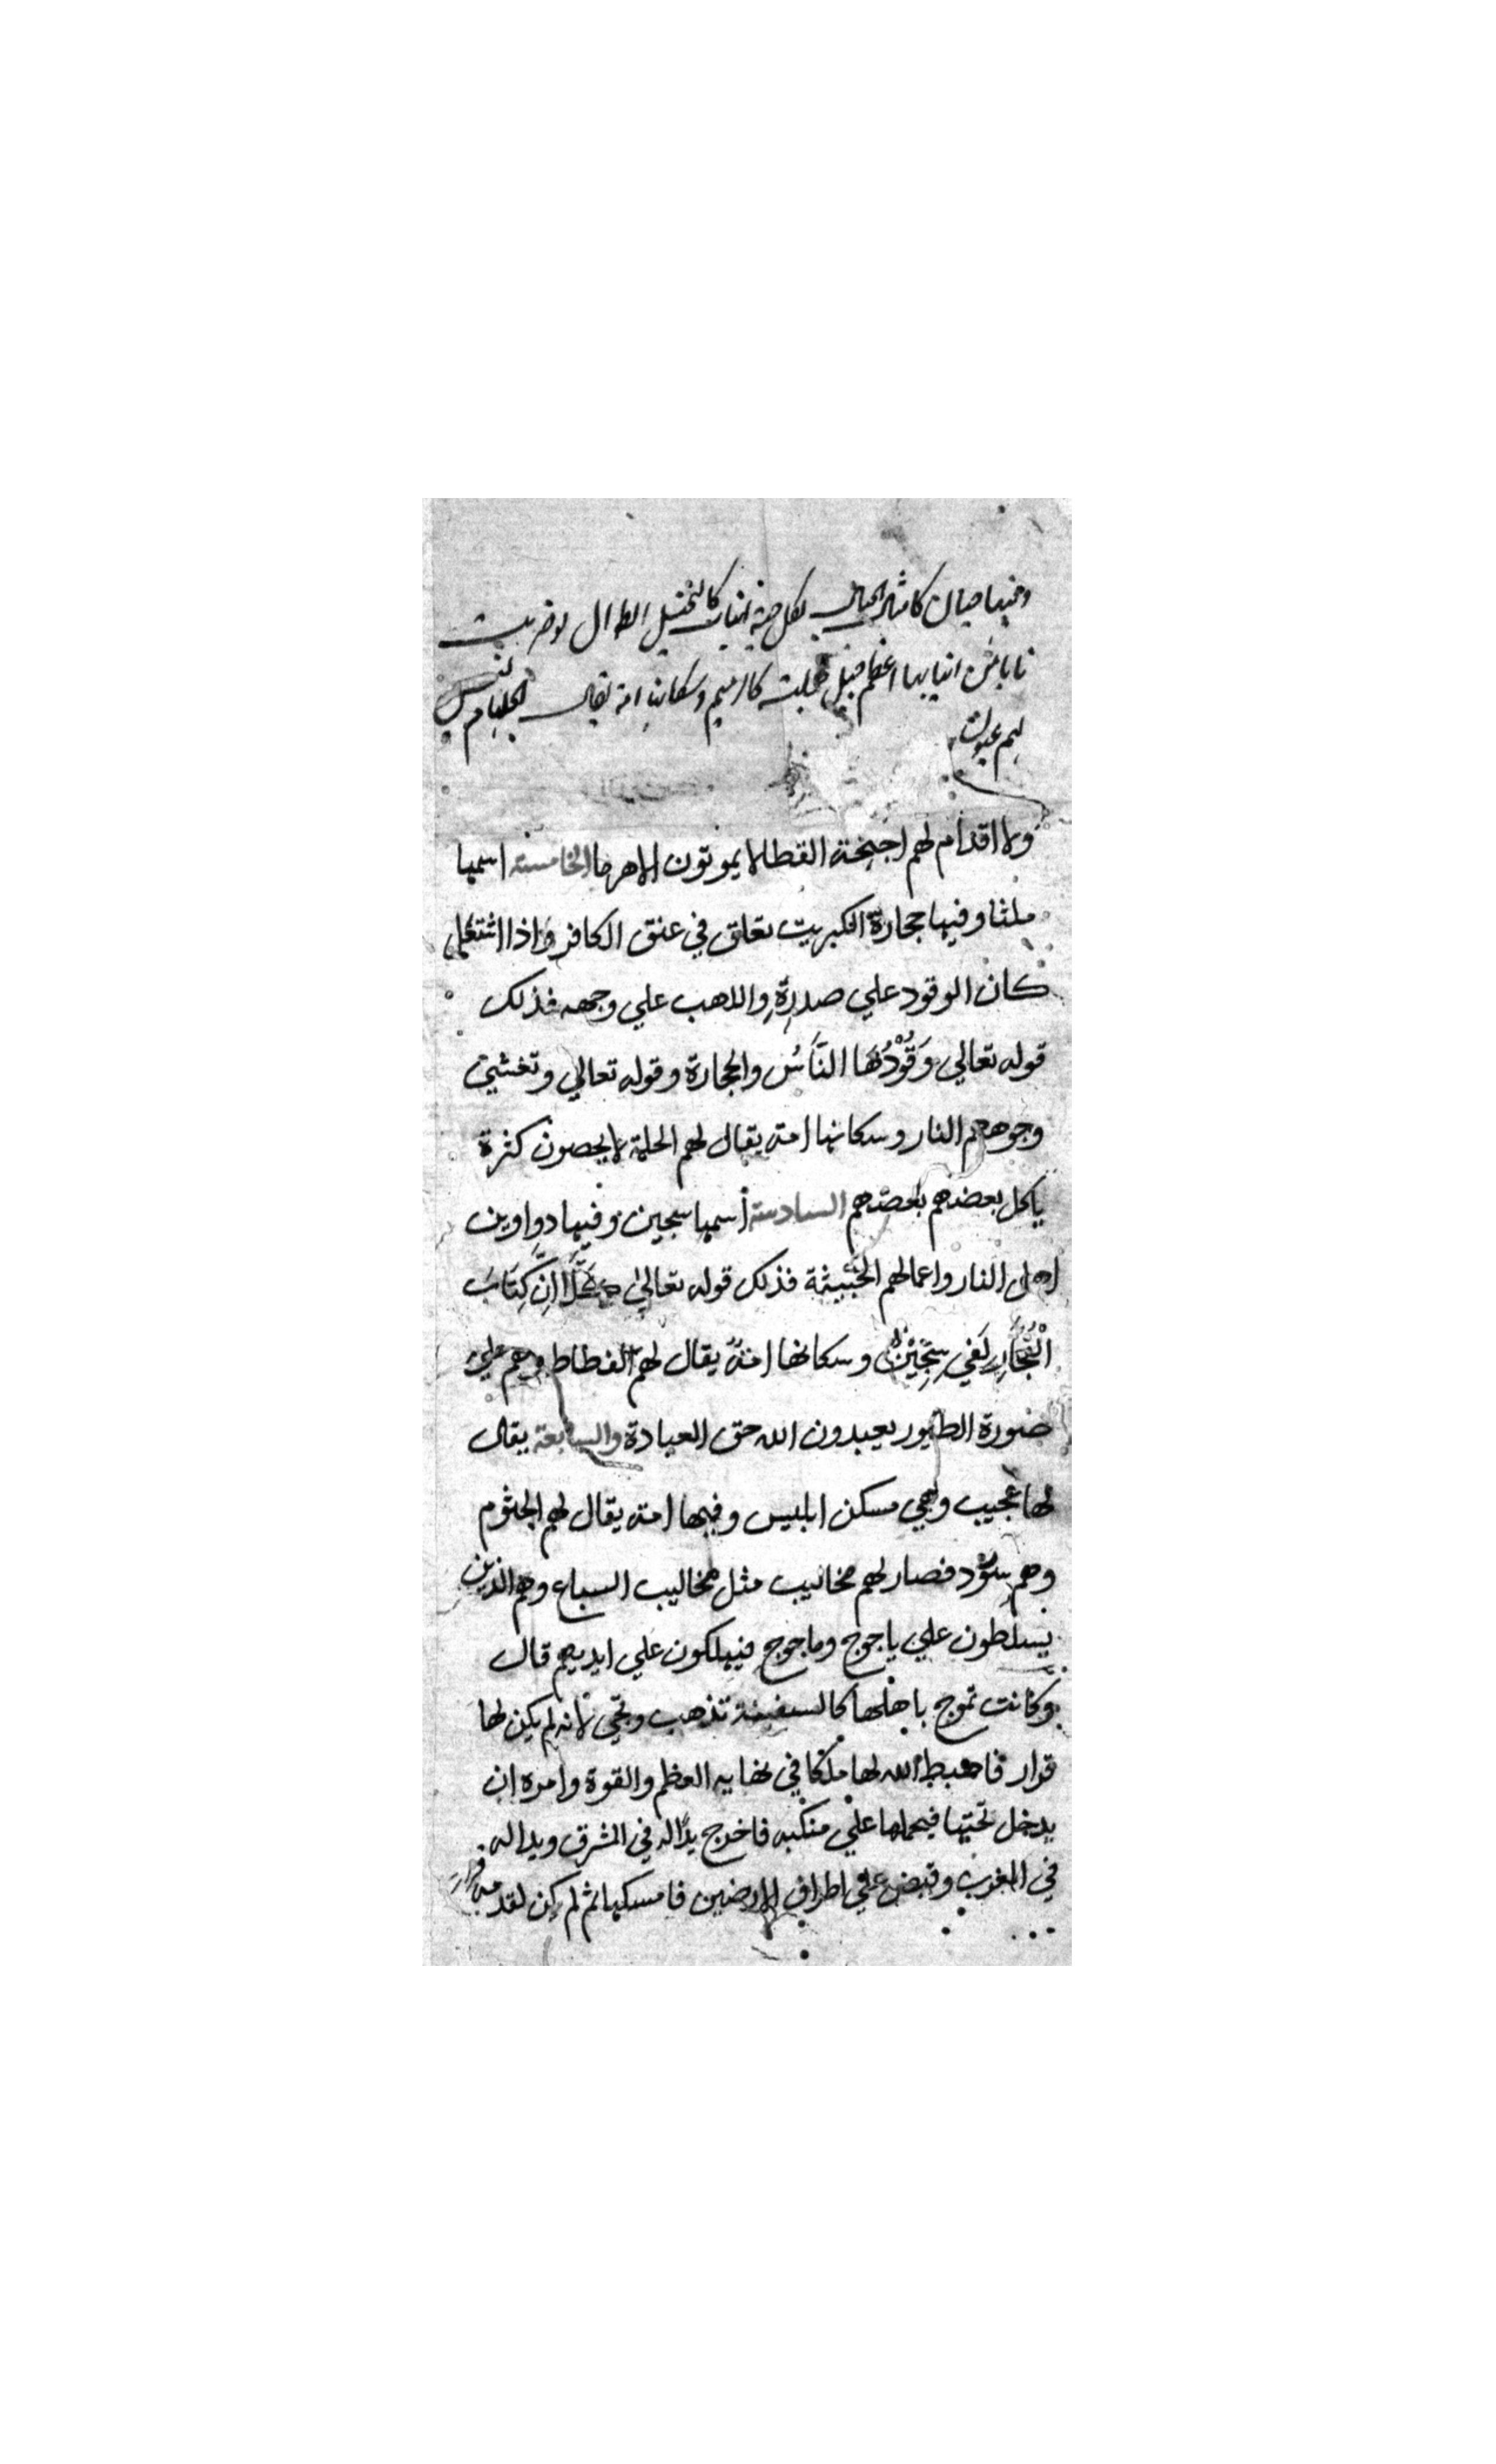 وفيها حيات كامثال الجبال لكل حية انياب كالنخيل الطوال لو ضربت
انيابها اعظم جبل لجعلته كالرميم وسكانها امة يقال لهم الجلهام ليس
لهم عيون
ولا اقدام لهم اجنحة القطا لا يموتون الا هرما الخامسة اسمها
ملثا وفيها حجارة الكبريت تعلق في عنق الكافر واذا اشتعل
كان الوقود علي صدره واللهب علي وجهه فذلك
قوله تعالي وَقُوْدُهَا النَّاسُ والحجارة وقوله تعالي وتغشي
وجوههم النار وسكانها امة يقال لهم الحلة لا يحصون كثرة
ياكل بعضهم بعضهم السادسة اسمها سجين وفيها دواوين
اهل النار واعمالهم الخبيثة فذلك قوله تعالي كَلَّا اِنَّ كِتَابَ
الْفُجَّارِ لَفِي سِجِّيْنٍ وسكانها امة يقال لهم القطاط وهم علي
صورة الطيور يعبدون الله حق العبادة والسابعة يقال
لها عجيب وهي مسكن ابليس وفيها امة يقال لهم الجثوم
وهم سود قصار لهم مخاليب مثل مخاليب السباع وهم الذين
يسلطون علي ياجوج وماجوج فيهلكون علي ايديهم قال
وكانت تموج باهلها كالسفينة تذهب وتجي لانه لم يكن لها
قرار فاهبط الله لها ملكا في نهاية العظم والقوة وامره ان
يدخل تحتها فيحملها علي منكبه فاخرج يدا له في المشرق ويدا له
في المغرب وقبض علي اطراف الارضين فامسكها ثم لم يكن لقدميه قرار